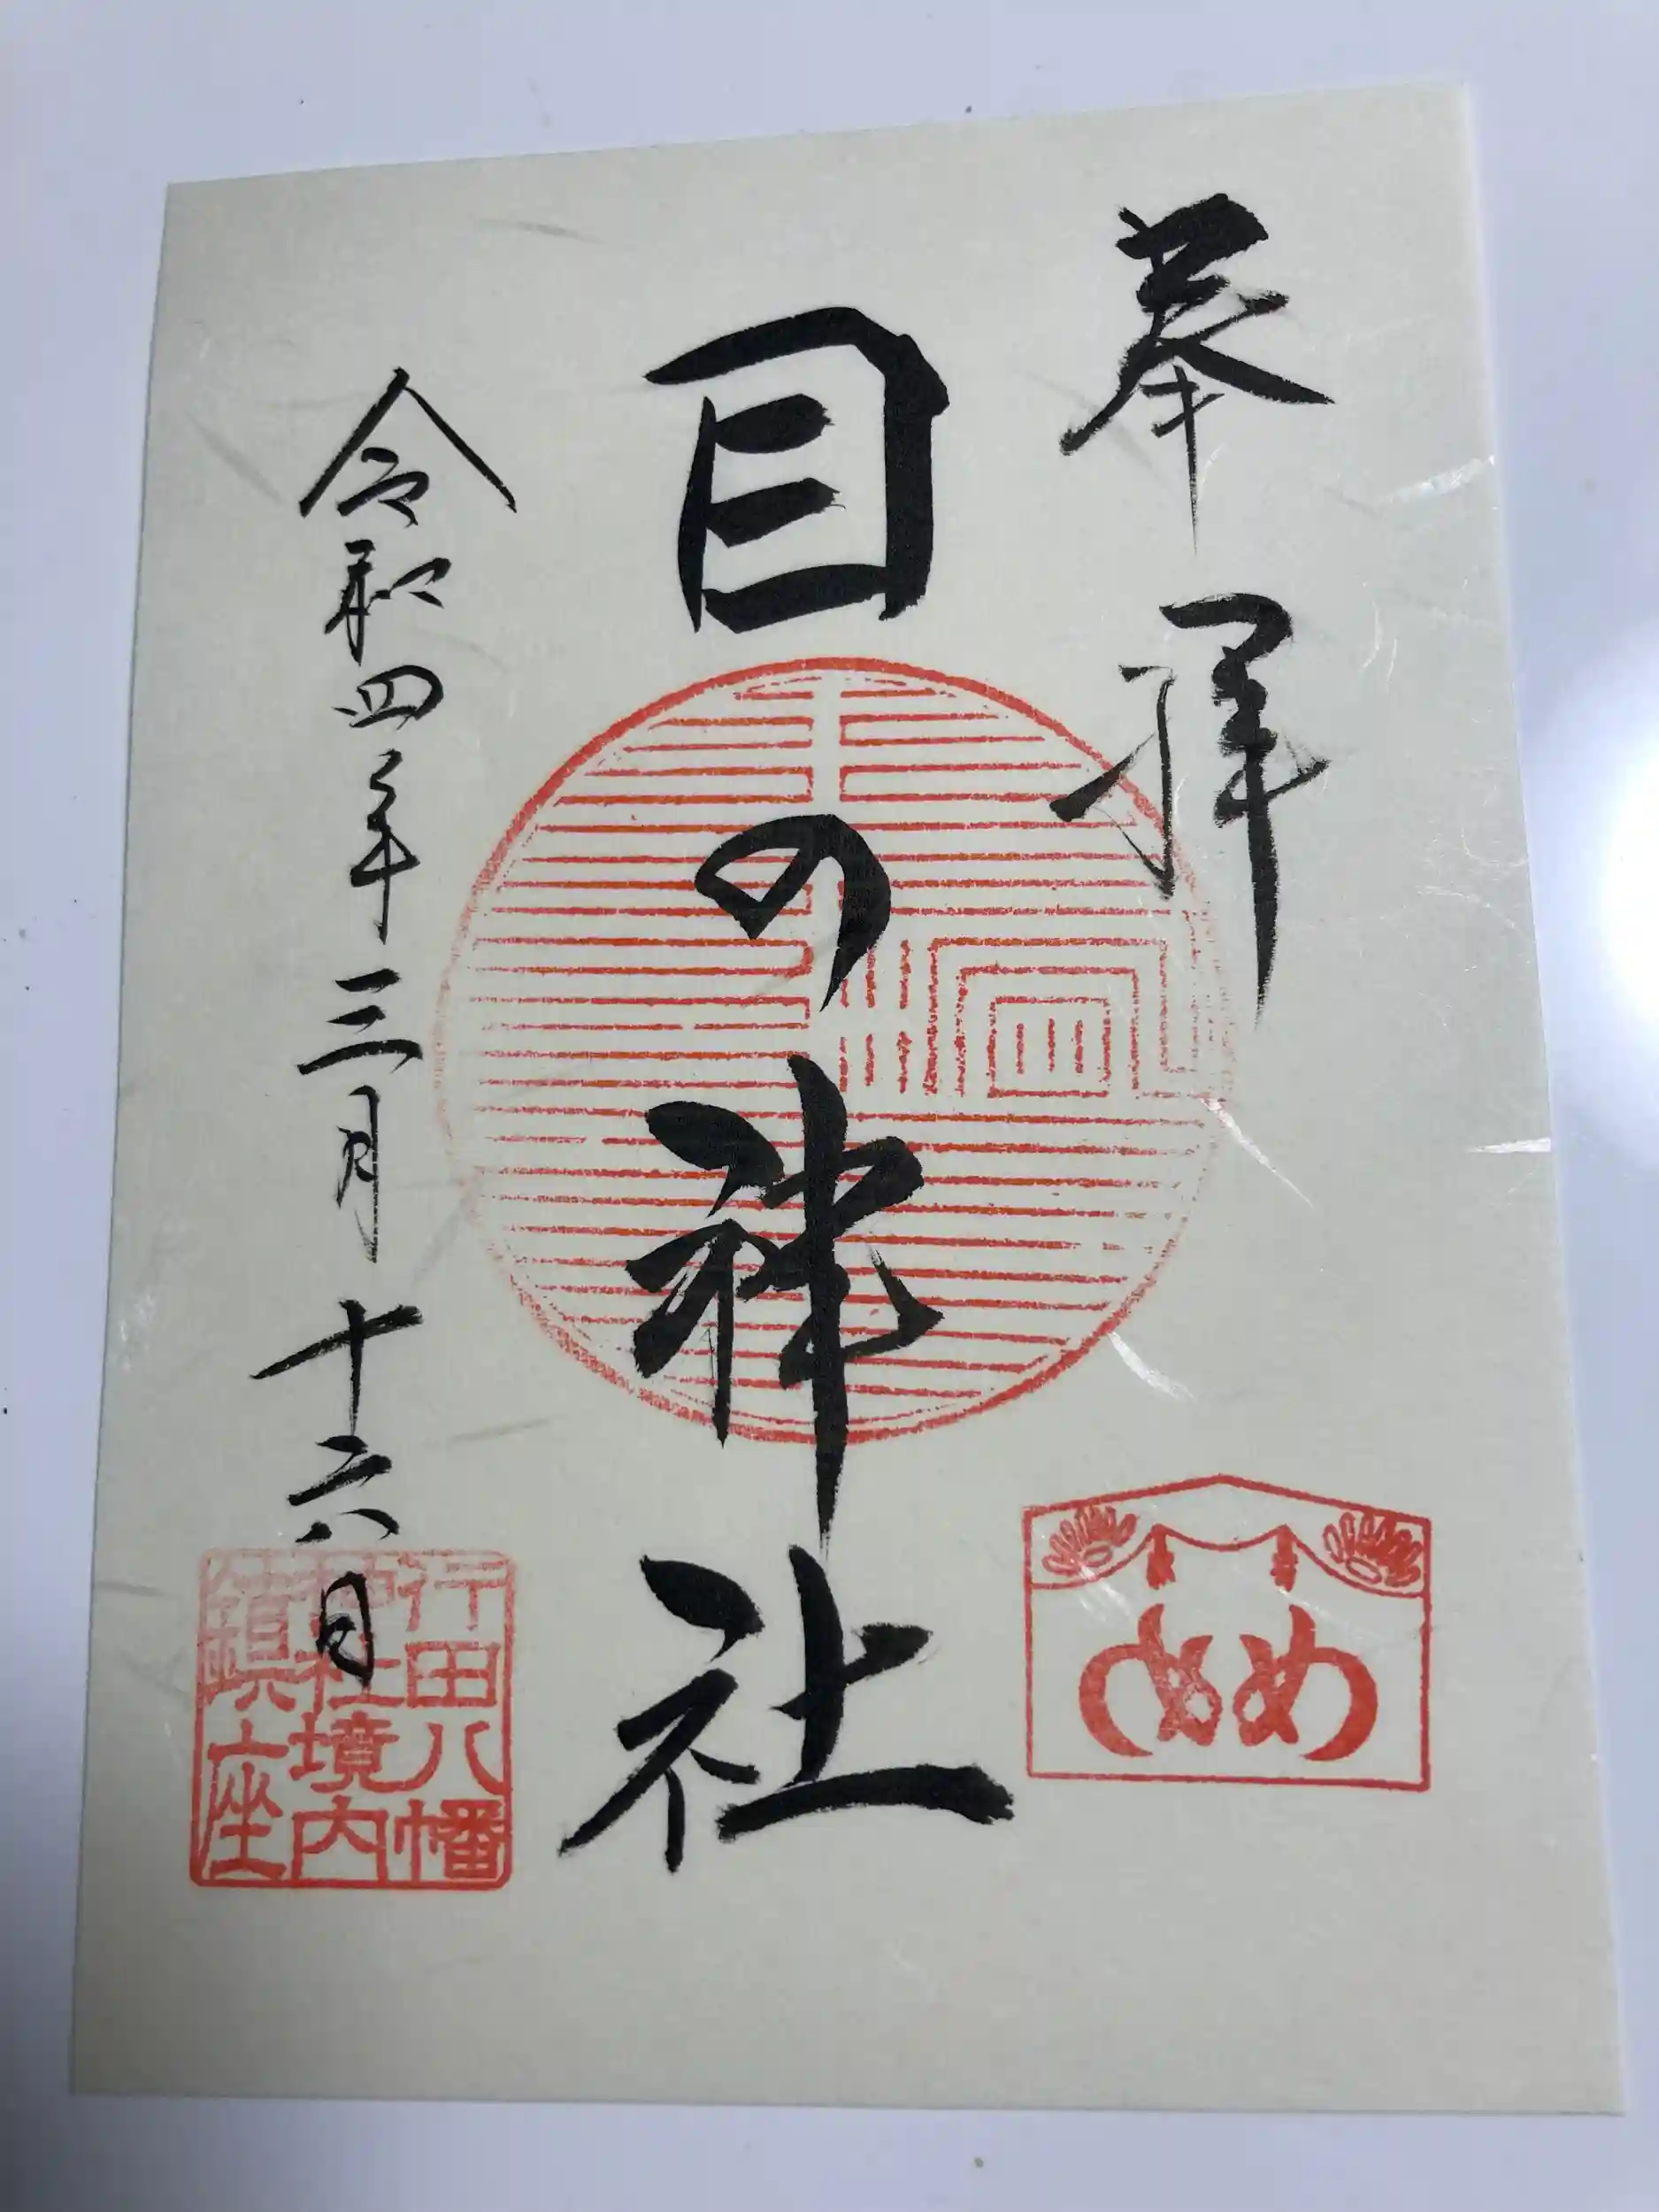 奉拝
目の神社
めめ
令和四年三月十六日
行田八幡
神社境内
鎮座